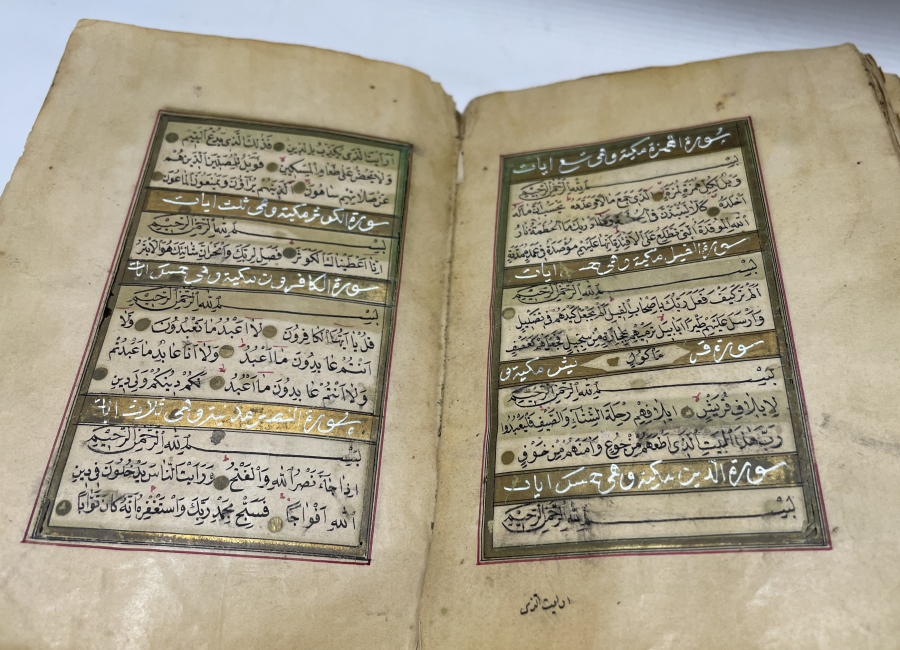 سورة الهمزة مكية وهي تسع ايات
بسم الله الرحمن الرحيم
ويل لكل همزة لمزة الذي جمع مالا وعدده يحسب ان ماله
اخلده كلا لينبذن في الحطمة وما ادريك ما الحطمة نار
الله الموقدة التي تطلع على الافئدة انها عليهم مؤصدة في عمد ممددة
سورة الفيل مكية وهي خمس ايات
بسم الله الرحمن الرحيم
الم تر كيف فعل ربك باصحاب الفيل الم يجعل كيدهم في تضليل
وارسل عليهم طيرا ابابيل ترميهم بحجارة من سجيل فجعلهم كعصف
ماكول
سورة قريش مكية و
بسم الله الرحمن الرحيم
لايلاف قريش ايلافهم رحلة الشتاء والصيف فليعبدوا
رب هذا البيت الذي اطعمهم من جوع وامنهم من خوف
سورة الدين مكية وهي خمس ايات
بسم الله الرحمن الرحيم
ارايت الذي
ارايت الذي يكذب بالدين فذلك الذي يدع اليتيم
ولا يحض على طعام المسكين فويل للمصلين الذين هم
عن صلاتهم ساهون الذين هم يراؤن ويمنعون الماعون
سورة الكوثر مكية وهي ثلث ايات
بسم الله الرحمن الرحيم
انا اعطيناك الكوثر فصل لربك وانحر ان شانئك هو الابتر
سورة الكافرون مكية وهي خمس ايات
بسم الله الرحمن الرحيم
قل يا ايها الكافرون لا اعبد ما تعبدون ولا
انتم عابدون ما اعبد ولا انا عابد ما عبدتم
ولا انتم عابدون ما اعبد لكم دينكم ولي دين
سورة النصر مدنية وهي ثلاث ايات
بسم الله الرحمن الرحيم
اذا جاء نصر الله والفتح ورايت الناس يدخلون في دين
الله افواجا فسبح بحمد ربك واستغفره انه كان توابا